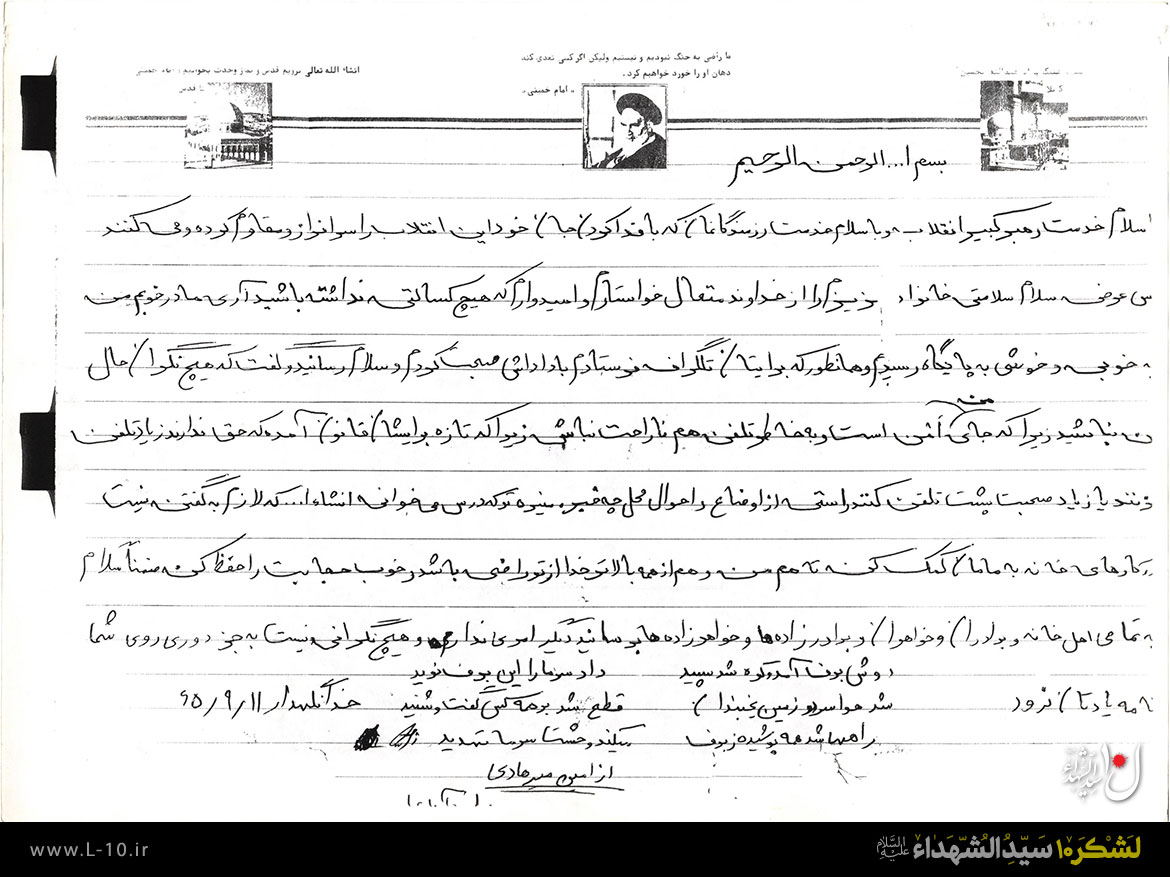 ما راضی به جنگ نبودیم و نیستیم ولیکن اگر کسی تعدی کند
دهان او را خورد خواهیم کرد.
- امام خمینی -
انشاء الله تعالی برویم قدس و نماز وحدت بخوانیم
بسم ا... الرحمن الرحیم
سلام خدمت رهبر کبیر انقلاب و با سلام خدمت رزمندگانمان که با فدا کردن جان خود این انقلاب را استوار و مقاوم کرده و می کنند
عرض سلام سلامتی خانواده عزیزم را از خداوند متعال خواستارم و امیدوارم که هیچ کسالتی نداشته باشید آری مادر خوبم من
به خوبی و خوشی به پایگاه رسیدم و همانطور که برایتان تلگراف فرستادم با داداش صحبت کردم و سلام رسانید و گفت که هیچ نگران حال
من نباشید زیرا که جای من أمن است و به خاطر تلفن هم ناراحت نباش زیرا که تازه برایشان قانون آمده که حق ندارند زیاد تلفن
بزنند یا زیاد صحبت پشت تلفن کنند راستی از اوضاع و احوال محل چه خبر منیره تو که درس می خوانی انشاء ا... که لازم به گفتن نیست
در کارهای خانه به مامان کمک کن تا هم من و هم از همه بالاتر خدا از تو راضی باشد و خوب حجابت را حفظ کن ضمناً سلام
به تمامی اهل خانه و برادران و خواهران و برادرزاده ها و خواهرزاده ها برسانید دیگر امری ندارم و هیچ نگرانی نیست به جز دوری روی شما
دوش برف آمد و کوه شد سپید داد سرما را این برف نوید
نامه یادتان نرود شد هوا سرد و زمین یخبندان قطع شد بر همه کس گفت و شنید خدانگهدار ۶۵/۹/۱۱
راهها شد همه پوشیده ز برف
از امین میرهادی
لشکر۱۰ سیدالشهداء علیه السلام
www.L-10.ir